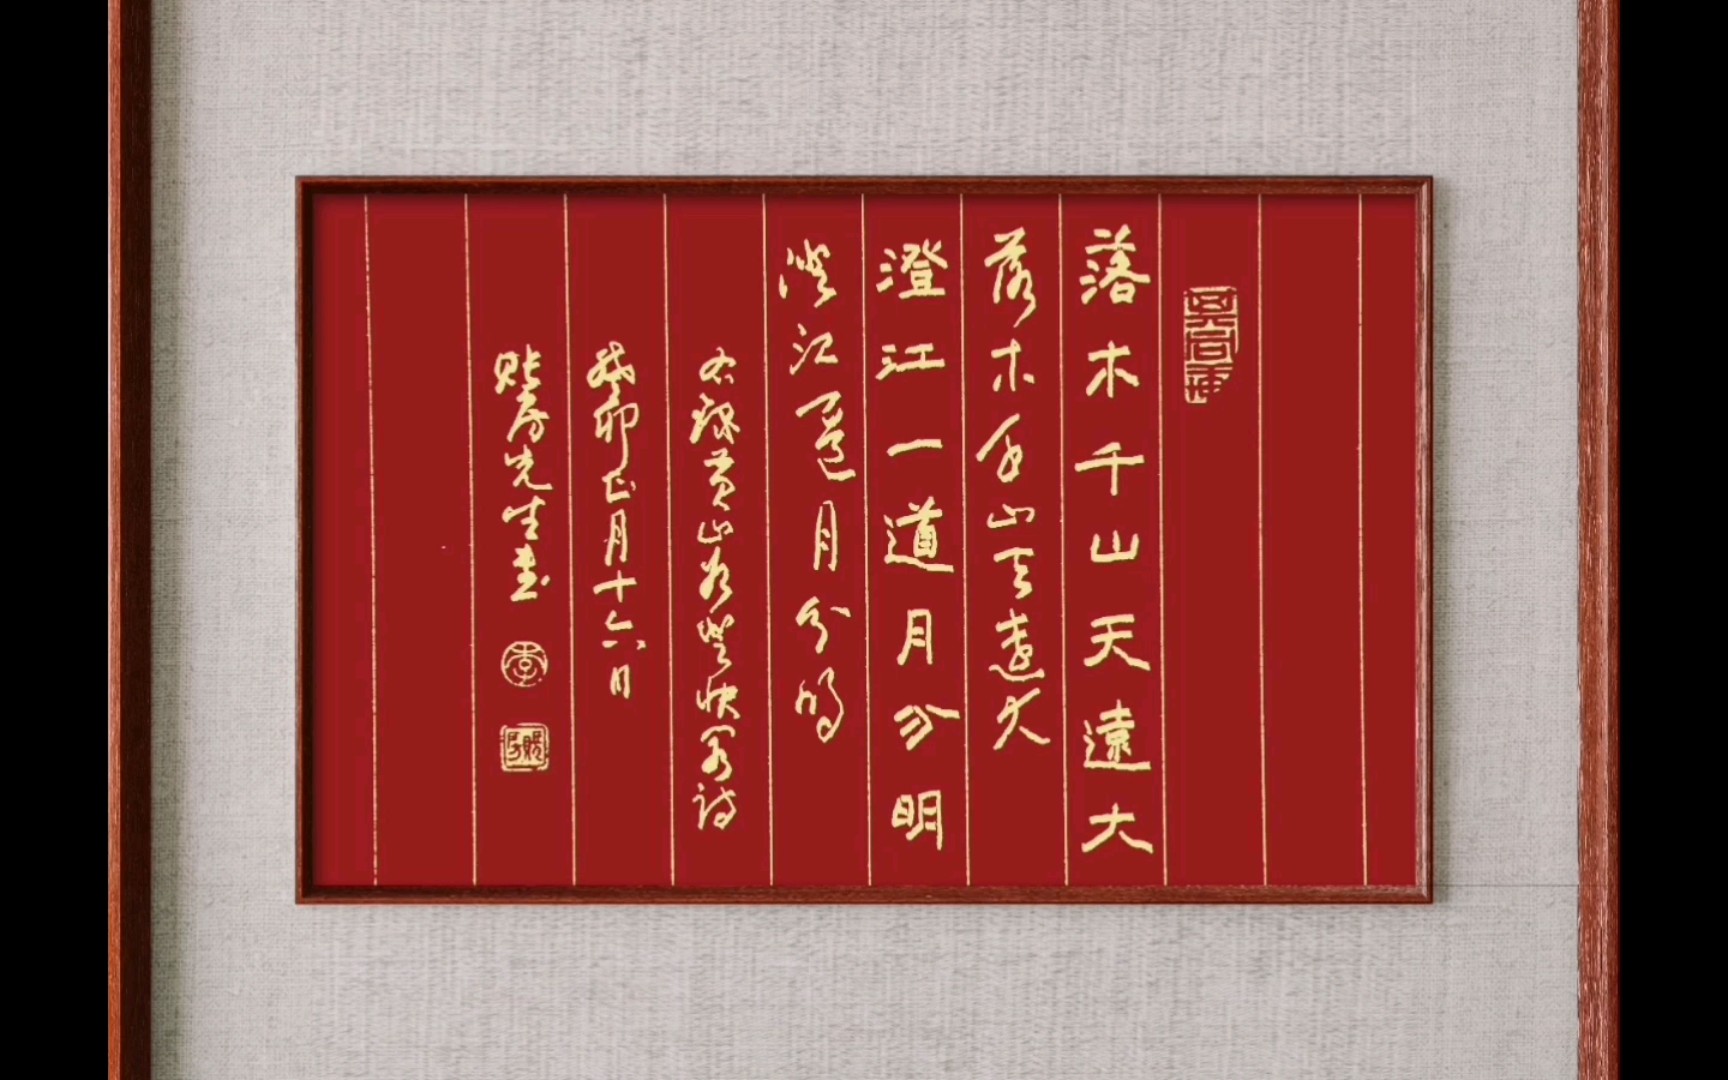 落木千山天遠大
落木千山天遠大
澄江一道月分明
澄江一道月分明
右錄黃山谷登快閣詩
癸卯正月十六日
貼房先生書